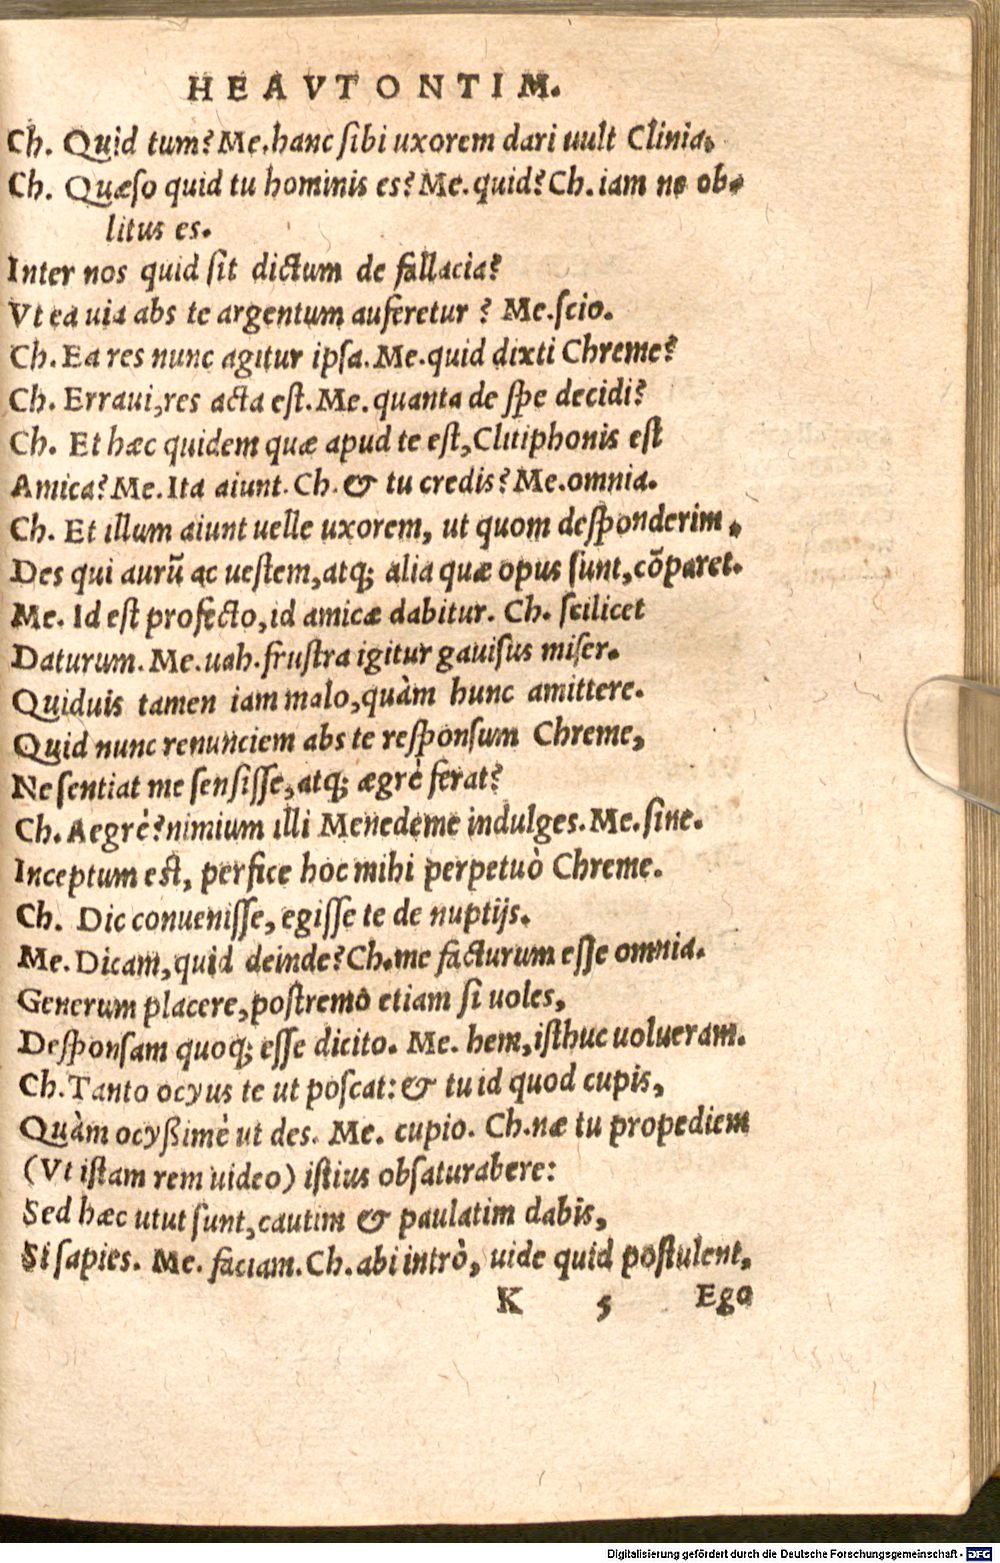 HEAVTONTIM.
Ch. Quid tum? Me. hanc ſibi uxorem dari uult Clinia,
Ch. Quæſo quid tu hominis es? Me. quid? Ch. iam ne ob-
litus es.
Inter nos quid ſit dictum de fallacia?
Vt ea uia abs te argentum auferetur? Me. ſcio.
Ch. Ea res nunc agitur ipſa. Me. quid dixti Chreme?
Ch. Erraui, res acta eſt. Me. quanta de ſpe decidi?
Ch. Et hæc quidem quæ apud te eſt, Clitiphonis eſt
Amica? Me. Ita aiunt. Ch. & tu credis? Me. omnia.
Ch. Et illum aiunt uelle uxorem, ut quom deſponderim,
Des qui aurũ ac ueſtem, atq; alia quæ opus ſunt, cõparet.
Me. Id eſt profecto, id amicæ dabitur. Ch. ſcilicet
Daturum. Me. uah. fruſtra igitur gauiſus miſer.
Quiduis tamen iam malo, quàm hunc amittere.
Quid nunc renunciem abs te reſponſum Chreme,
Ne ſentiat me ſenſiſſe, atq; ægrè ferat?
Ch. Aegrè? nimium illi Menedeme indulges. Me. ſine.
Inceptum eſt, perfice hoc mihi perpetuò Chreme.
Ch. Dic conueniſſe, egiſſe te de nuptijs.
Me. Dicam, quid deinde? Ch. me facturum eſſe omnia.
Generum placere, poſtremo etiam ſi uoles,
Deſponſam quoq; eſſe dicito. Me. hem, iſthuc uolueram.
Ch. Tanto ocyus te ut poſcat: & tu id quod cupis,
Quàm ocyßimè ut des. Me. cupio. Ch. næ tu propediem
(Vt iſtam rem uideo) iſtius obſaturabere:
Sed hæc utut ſunt, cautim & paulatim dabis,
Si ſapies. Me. faciam. Ch. abi intrò, uide quid poſtulent,
K 5 Ego
Digitalisierung gefördert durch die Deutsche Forschungsgemeinschaft - DFG